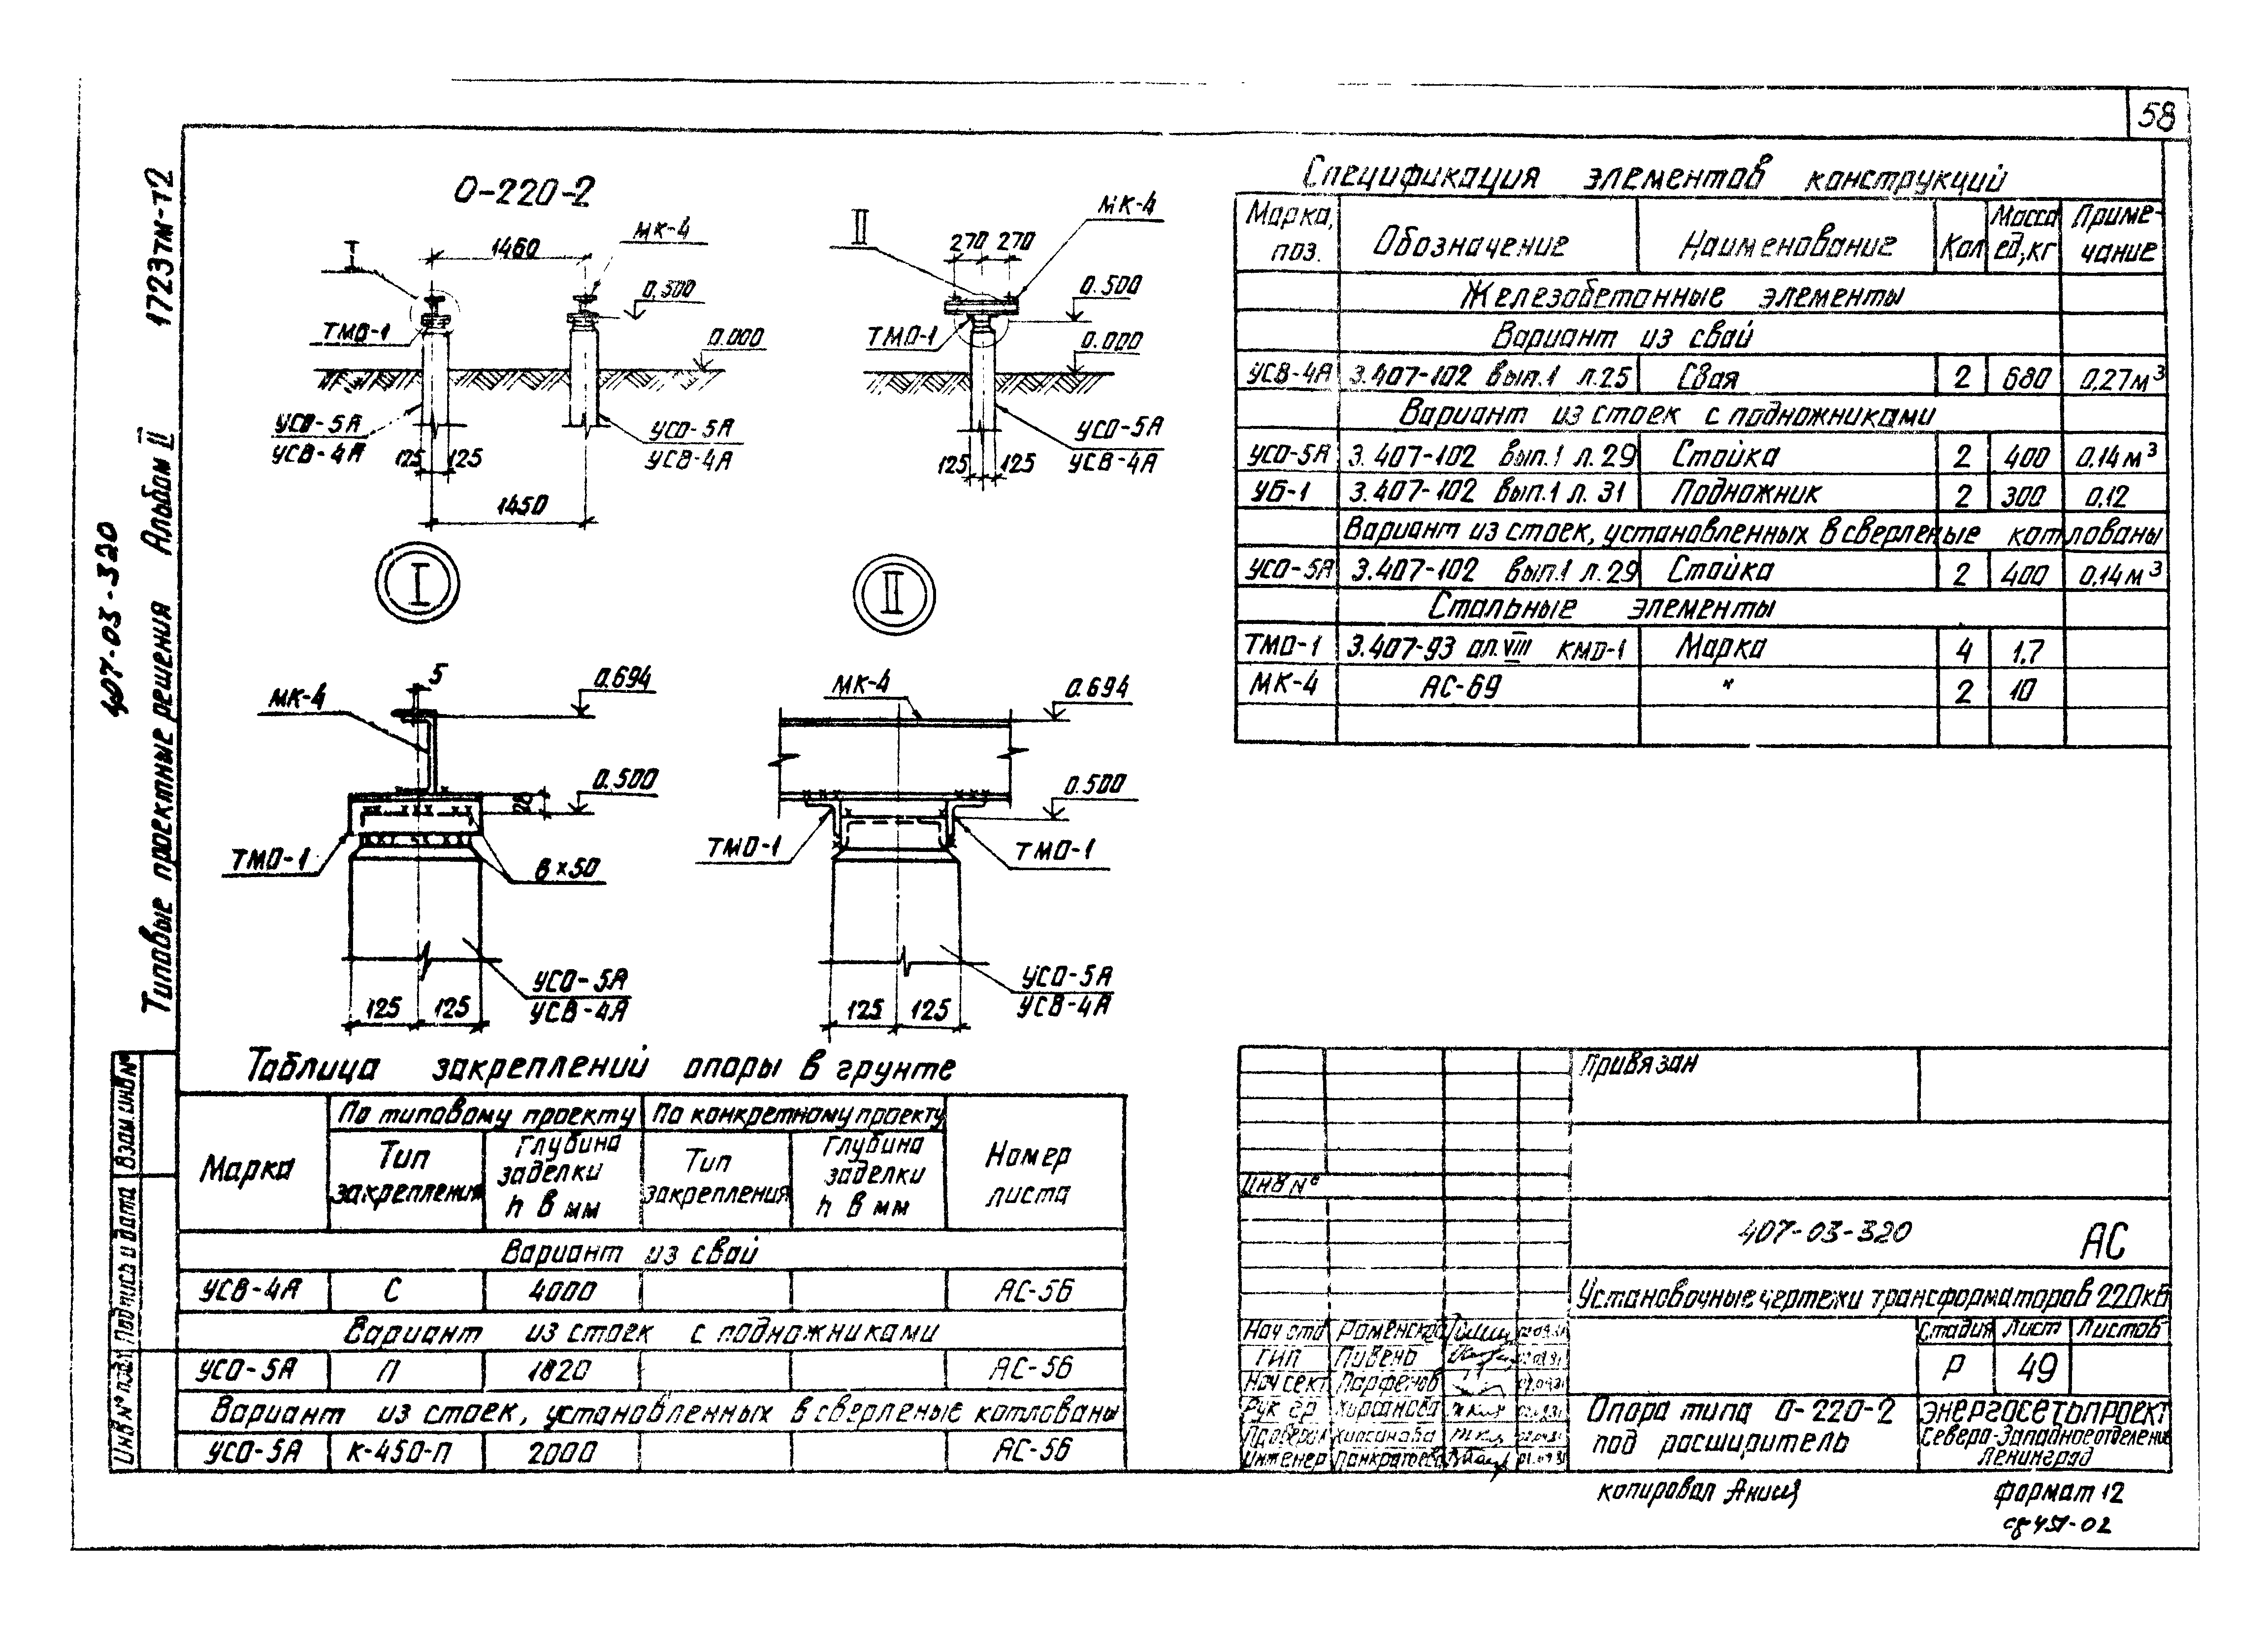 58
407-03-320
Типовые проектные решения Альбом II 1723тм-т2
О-220-2
I
1460
МК-4
0.500
ТМО-1
0.000
УСО-5А
УСВ-4А
125 125
УСО-5А
УСВ-4А
1450
II
270 270
МК-4
0.500
ТМО-1
0.000
УСО-5А
УСВ-4А
125 125
I
5
МК-4
0.694
0.500
ТМО-1
6×50
УСО-5А
УСВ-4А
125 125
II
МК-4
0.694
0.500
ТМО-1
ТМО-1
УСО-5А
УСВ-4А
125 125
Спецификация элементов конструкций
Марка, поз. Обозначение Наименование Кол Масса ед,кг Примечание
Железобетонные элементы
Вариант из свай
УСВ-4А 3.407-102 вып.1 л.25 Свая 2 680 0.27м³
Вариант из стоек с подножниками
УСО-5А 3.407-102 вып.1 л.29 Стойка 2 400 0.14м³
УБ-1 3.407-102 вып.1 л.31 Подножник 2 300 0.12
Вариант из стоек, установленных в сверленые котлованы
УСО-5А 3.407-102 вып.1 л.29 Стойка 2 400 0.14м³
Стальные элементы
ТМО-1 3.407-93 ал.VIII КМД-1 Марка 4 1.7
МК-4 АС-69 " 2 10
Таблица закреплений опоры в грунте
Марка По типовому проекту По конкретному проекту Номер листа
Тип закрепления Глубина заделки h в мм Тип закрепления Глубина заделки h в мм
Вариант из свай
УСВ-4А С 4000 АС-56
Вариант из стоек с подножниками
УСО-5А П 1820 АС-56
Вариант из стоек, установленных в сверленые котлованы
УСО-5А К-450-П 2000 АС-56
Взам.инв№
Подпись и дата
Инв№ подл.
Привязан
Инв№
407-03-320 АС
Установочные чертежи трансформаторов 220кВ
Нач отд Роменский
ГИП
Нач сект Парфенов
Рук гр Кирсанова
Проверил Кирсанова
Инженер Панкратова
Стадия Лист Листов
Р 49
Опора типа О-220-2
под расширитель
ЭНЕРГОСЕТЬПРОЕКТ
Северо-Западное отделение
Ленинград
копировал
формат 12